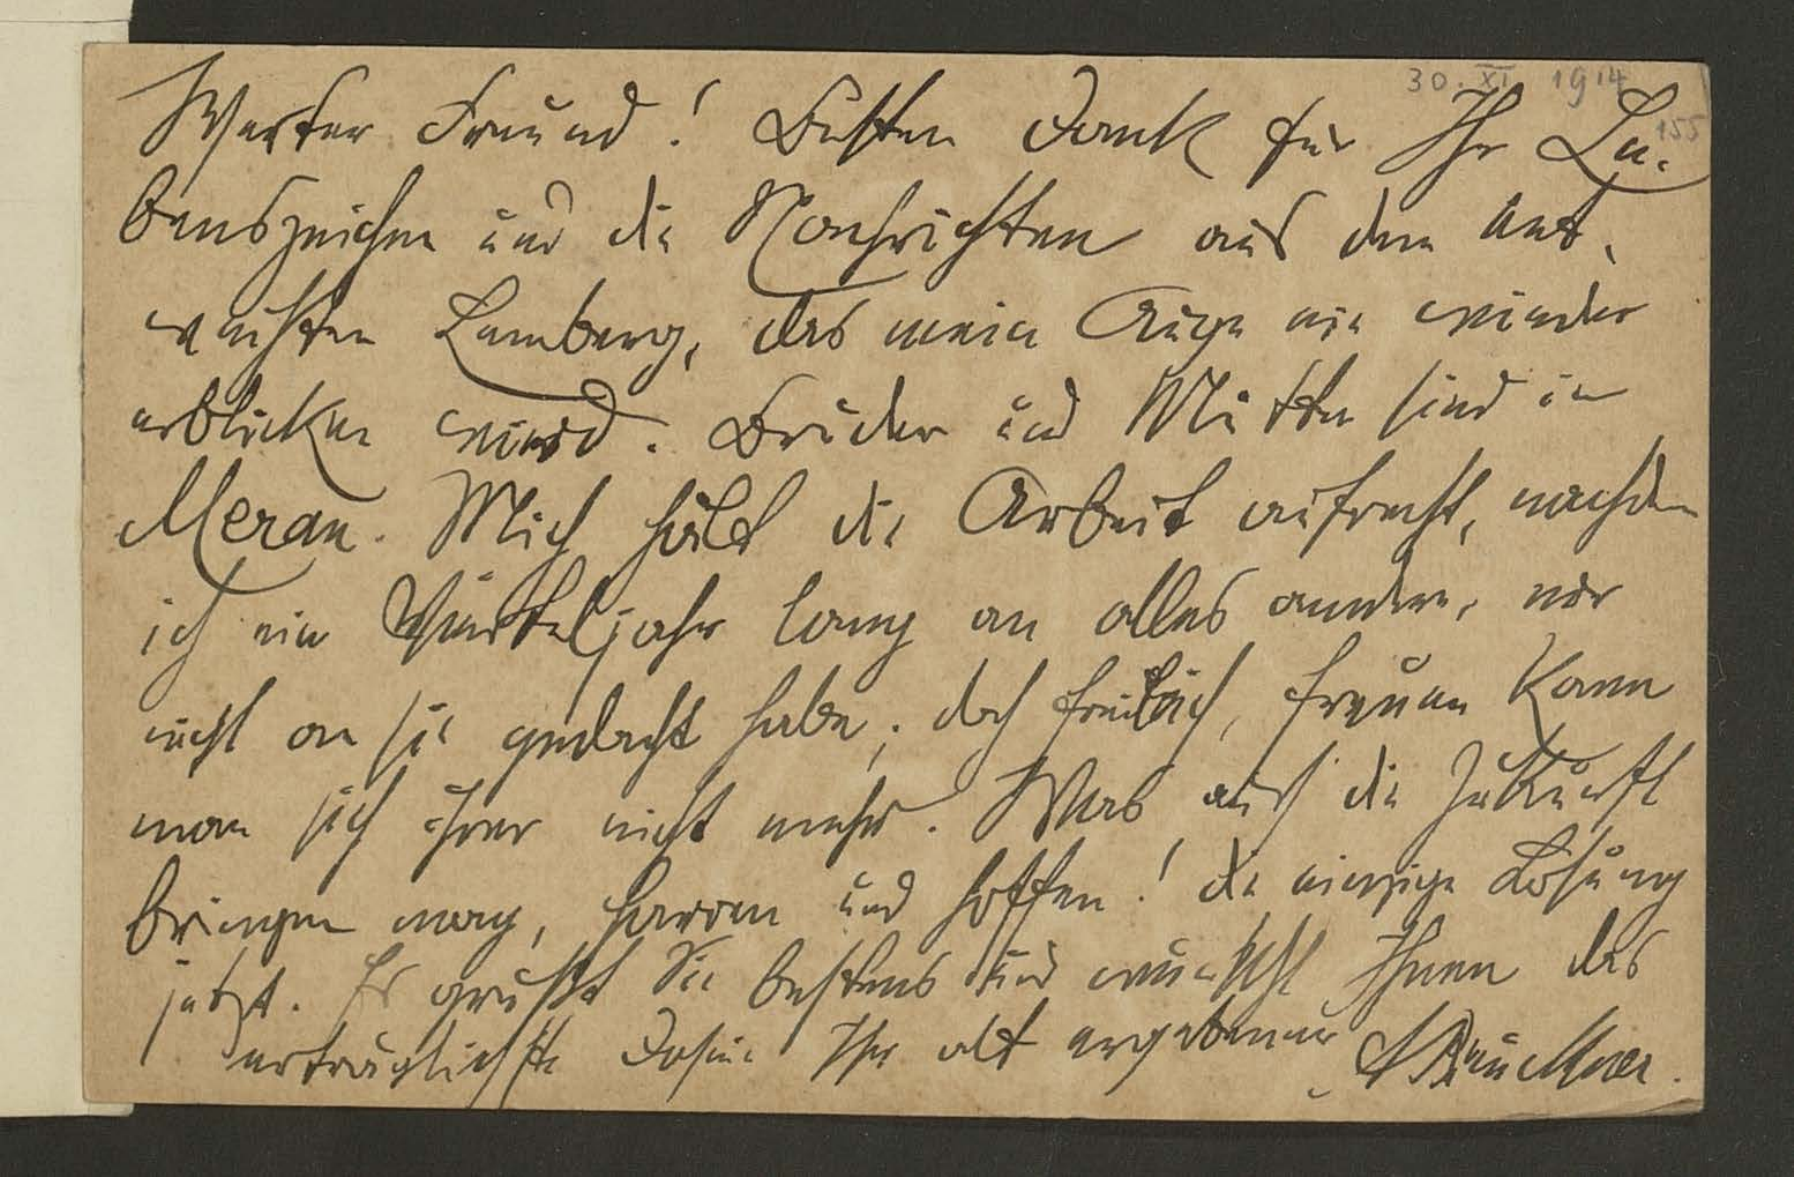 30. XI 1914
155
Werter Freund! Besten Dank für Ihr Le-
benszeichen und die Nachrichten aus dem
Lemberg, das mein Auge nie wieder
erblicken wird. Brüder und Mutter sind in
Meran. Mich hält die Arbeit aufrecht, nachdem
ich ein Vierteljahr lang an alles andere, nur
nicht an sie gedacht habe; doch freilich, freuen kann
man sich ihrer nicht mehr. Was auch die Zukunft
bringen mag, harren und hoffen! die einzige Losung
jetzt. Es grüßt Sie bestens und wünscht Ihnen das
erträglichste Dasein Ihr alt ergebener